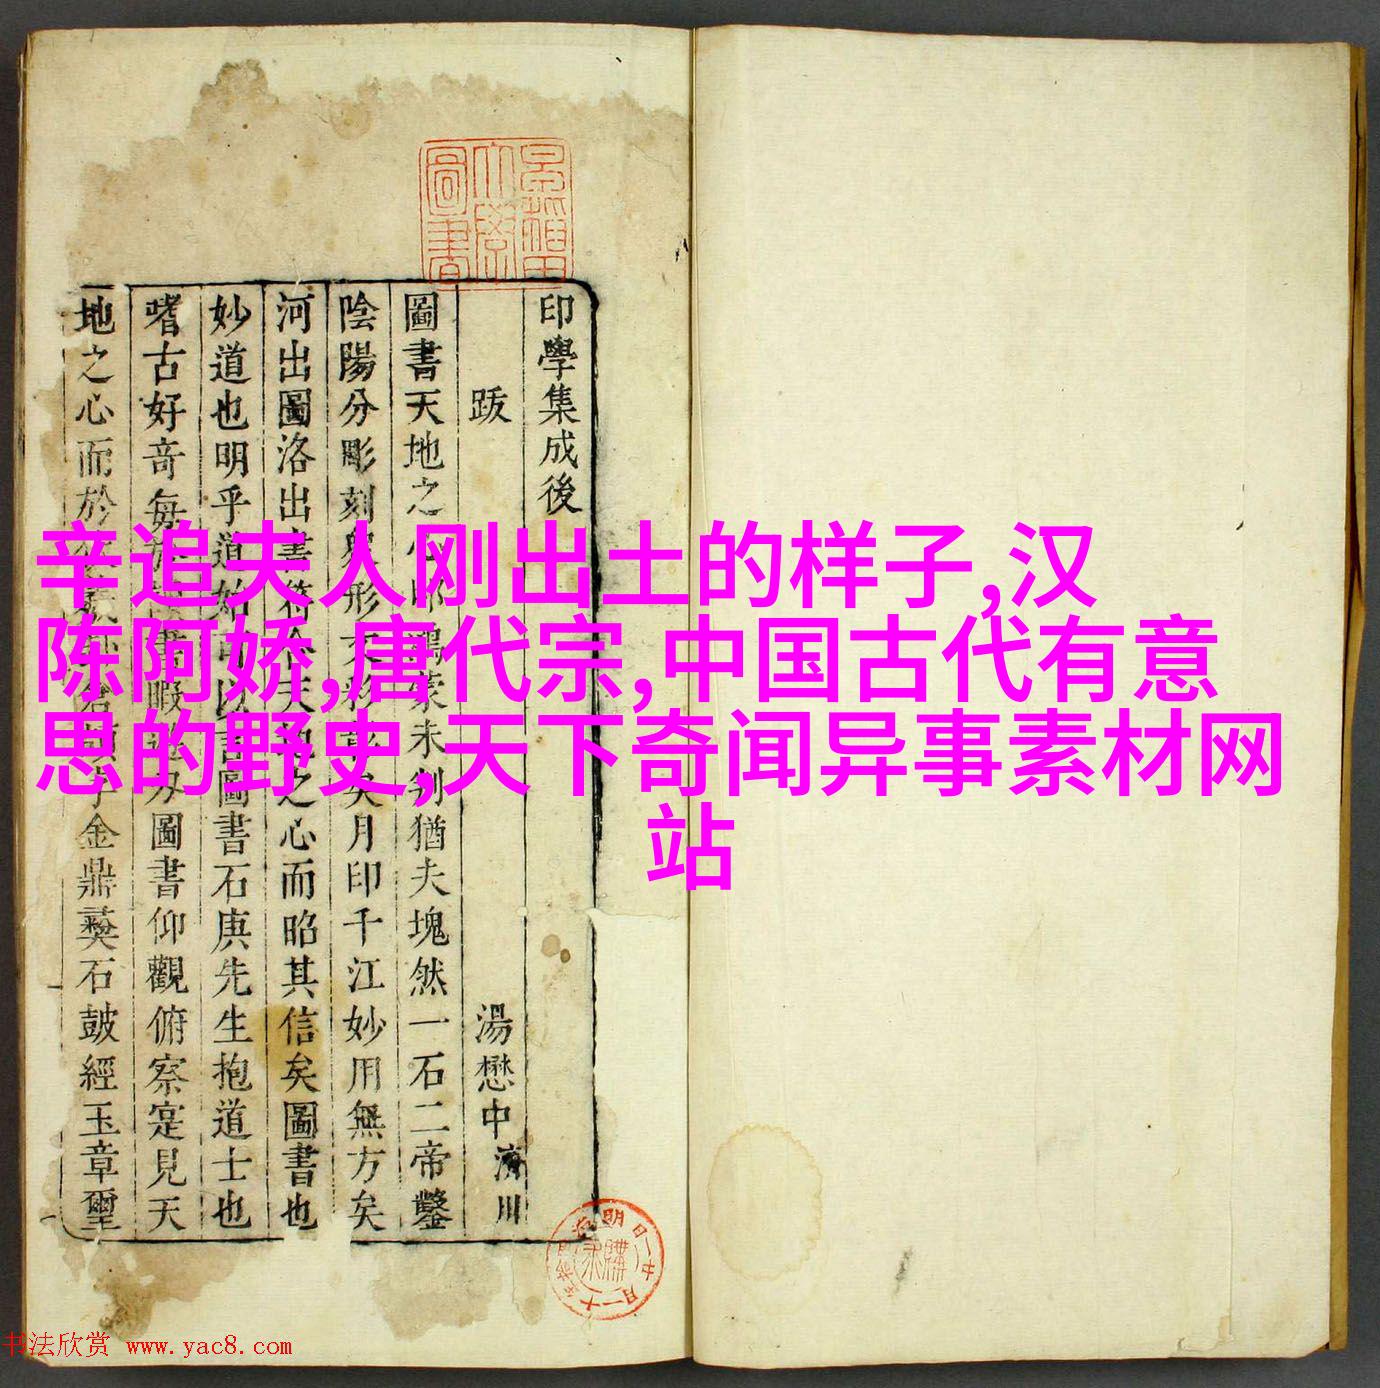 辛追夫人刚出土的样子,汉
陈阿娇,唐代宗,中国古代有意
思的野史,天下奇闻异事素材网
站
印學集成後
跋
湯懋中 濟川
圖書天地之心即鴻蒙未剖猶夫塊然一石二帝鑿
陰陽分彫刻衆形文彩 矣月印千江妙用無方矣
河出圖洛出書符合天地之心而昭其信矣圖書也
妙道也明乎道始可以 圖書石庚先生抱道士也
嗜古好奇每 書暇遊刃圖書仰觀俯察寔見天
地之心而於 字金鼎彝石鼓經玉章璽
圖書
明治
書法欣赏 www.yac8.com